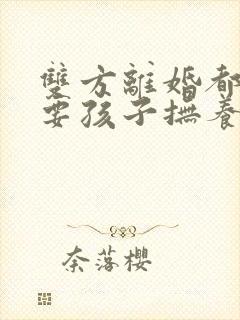 雙方離婚都
要孩子撫養
奈落櫻